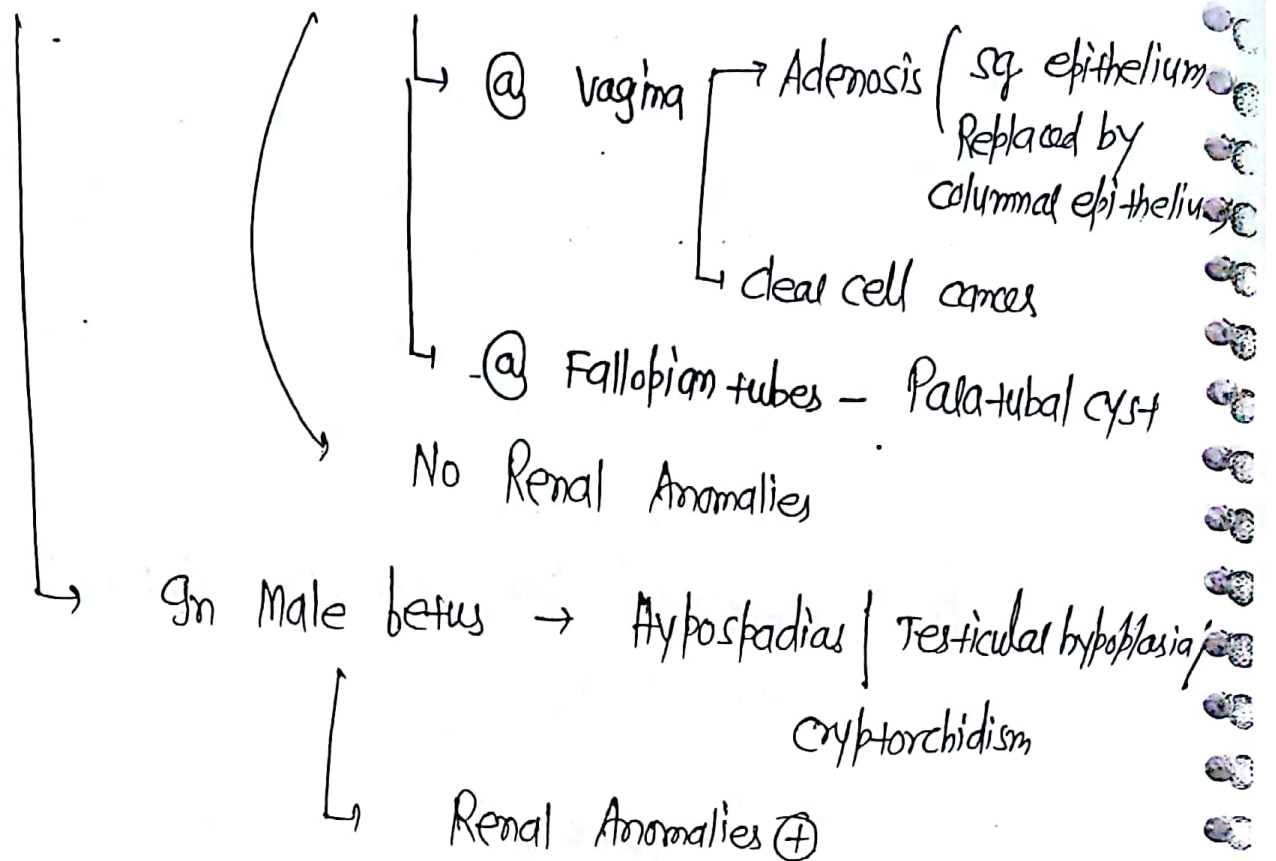 @ vagina → Adenosis ( sq. epithelium
Replaced by
columnar epithelium
clear cell cancer
@ Fallopian tubes – Paratubal cyst
No Renal Anomalies
In Male fetus → Hypospadias / Testicular hypoplasia /
cryptorchidism
Renal Anomalies ⊕